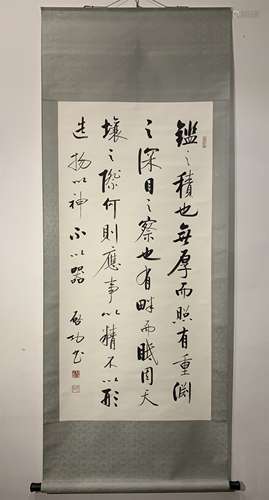 鑑之積也無厚而照有重淵
之深目之察也有畔而眂周天
壤之際何則應事以精不以形
造物以神不以器 启功书